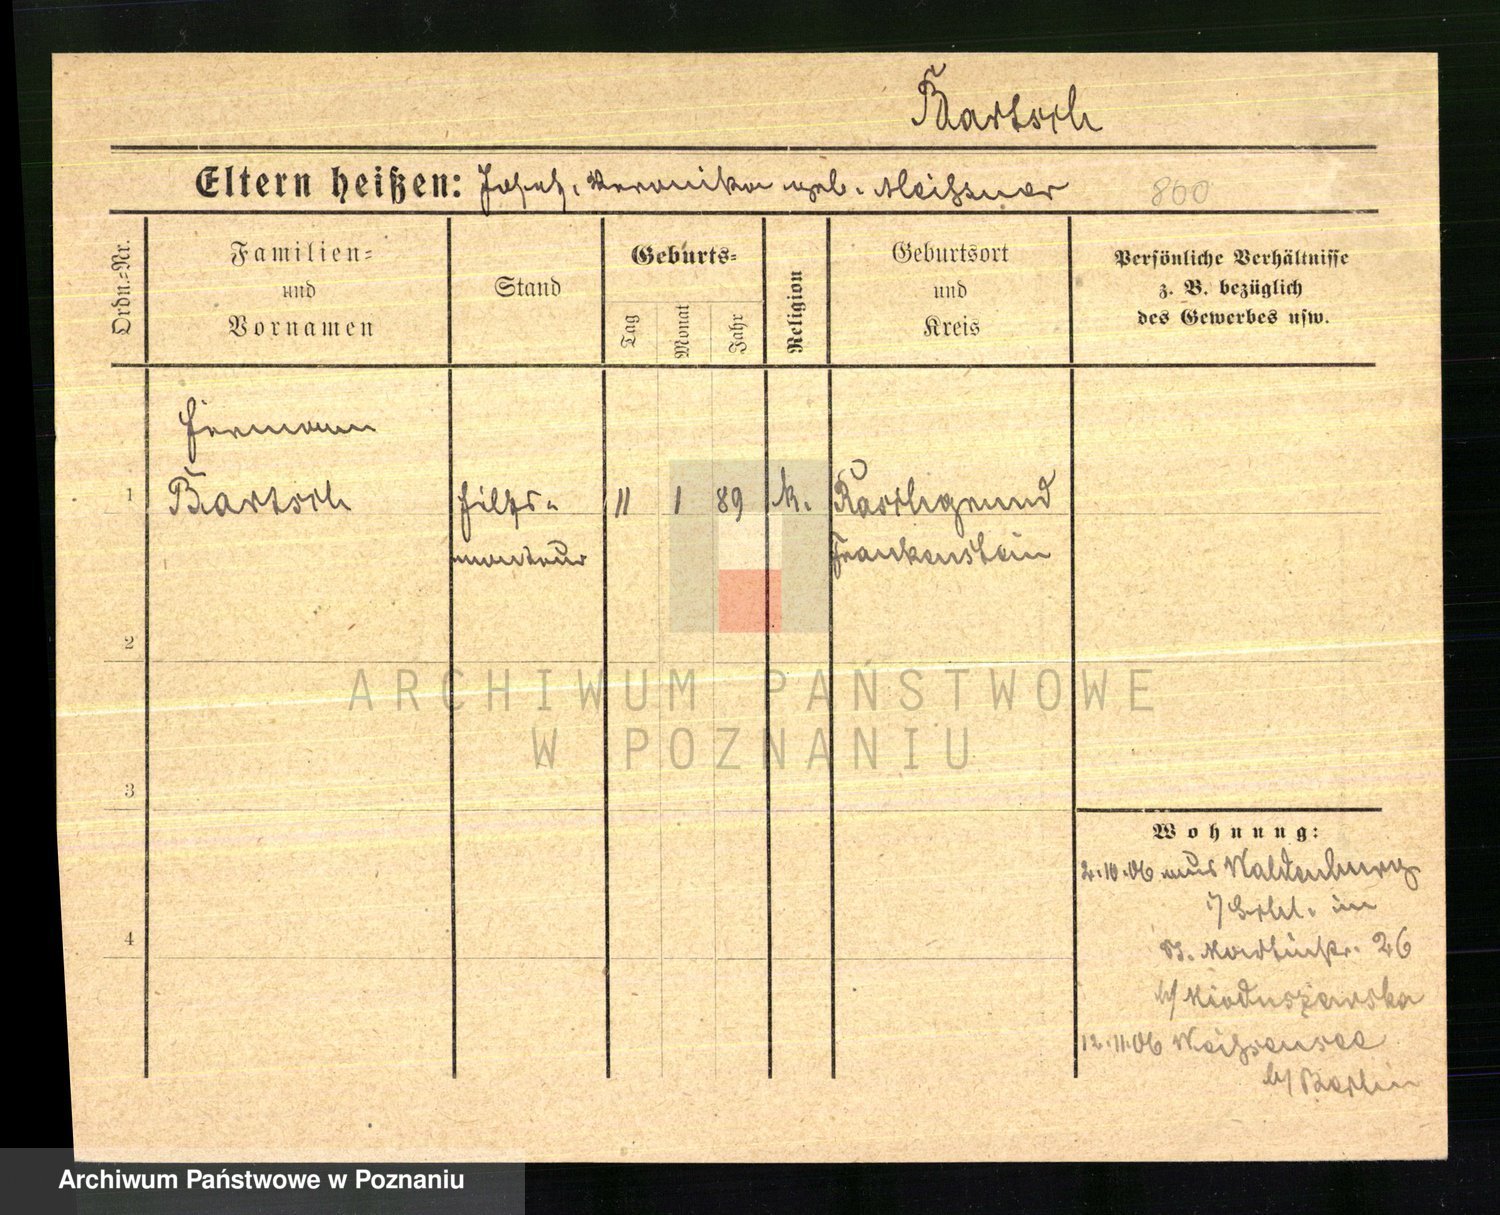 Bartsch
Eltern heißen: Joseph, Veronika geb. Meissner
860
Ordn.=Nr.
Familien=
und
Vornamen
Stand
Geburts=
Tag
Monat
Jahr
Religion
Geburtsort
und
Kreis
Persönliche Verhältnisse
z. B. bezüglich
des Gewerbes usw.
Hermann
1 Bartsch Hilfs= 11 1 89 k.
monteur Frankenstein
2
3
4
Wohnung:
2.10.06 aus Waldenburg
i/Schl. in
26
12.11.06 Weissensee
b/Berlin
ARCHIWUM PAŃSTWOWE
W POZNANIU
Archiwum Państwowe w Poznaniu